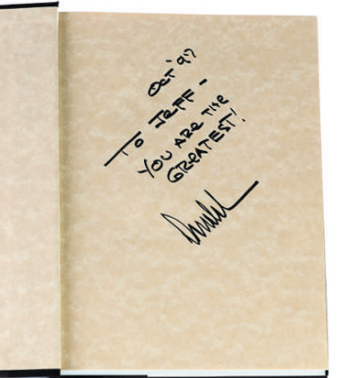 OCT '97
TO JEFF -
YOU ARE THE
GREATEST!